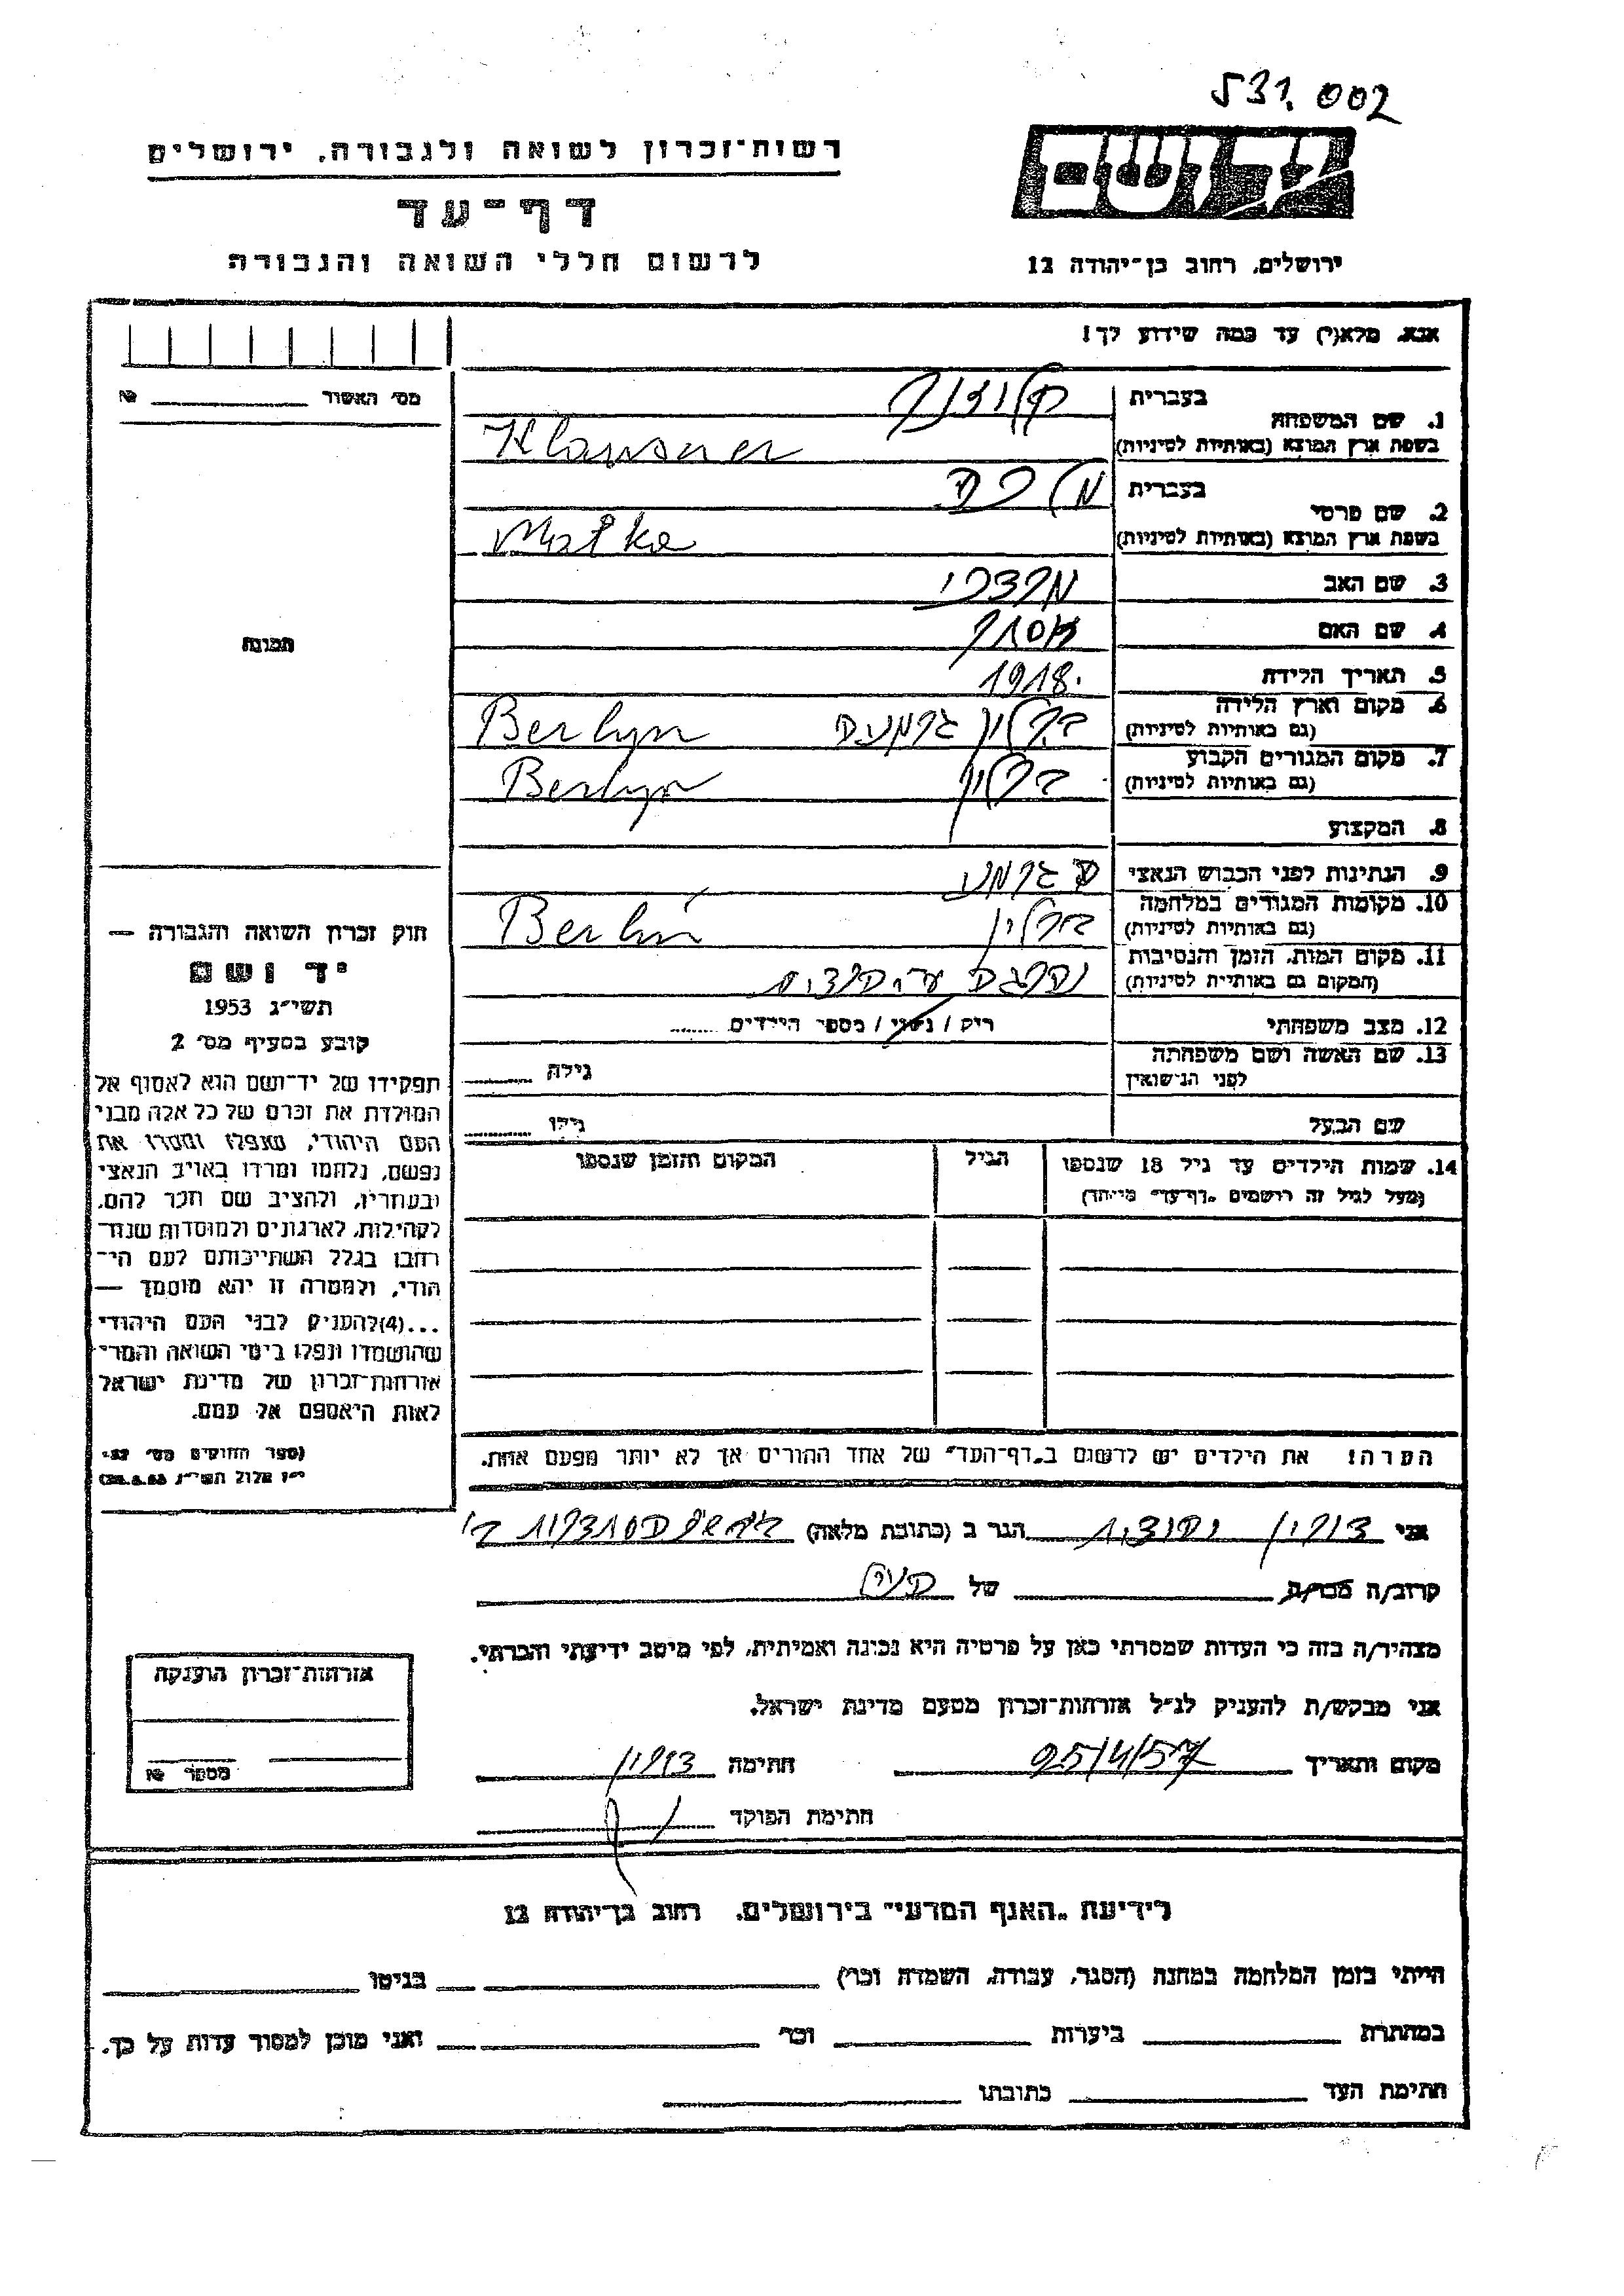 531.002
רשות־זכרון לשואה ולגבורה, ירושלים
דף־עד
לרשום חללי השואה והגבורה
יד ושם
ירושלים, רחוב בן־יהודה 12
אנא, מלא(י) עד כמה שידוע לך!
מס׳ האשור № 
1. שם המשפחה בעברית
בשפת ארץ המוצא (באותיות לטיניות) Klausner
2. שם פרטי בעברית מלכה
בשפת ארץ המוצא (באותיות לטיניות) Malka
3. שם האב מרדכי
4. שם האם אסתר
5. תאריך הלידה 1918
6. מקום וארץ הלידה (גם באותיות לטיניות) ברלין Berlyn
7. מקום המגורים הקבוע (גם באותיות לטיניות) ברלין Berlyn
8. המקצוע
9. הנתינות לפני הכבוש הנאצי
10. מקומות המגורים במלחמה (גם באותיות לטיניות) ברלין Berlin
11. מקום המות, הזמן והנסיבות (המקום גם באותיות לטיניות)
12. מצב משפחתי רוק / נשוי / מספר הילדים
13. שם האשה ושם משפחתה לפני הנישואין גילה
שם הבעל גילו
14. שמות הילדים עד גיל 18 שנספו הגיל המקום והזמן שנספו
(מעל לגיל זה רושמים „דף־עד״ מיוחד)
הערה: את הילדים יש לרשום ב„דף־העד״ של אחד ההורים אך לא יותר מפעם אחת.
תמונה
חוק זכרון השואה והגבורה —
יד ושם
תשי״ג 1953
קובע בסעיף מס׳ 2
תפקידו של יד־ושם הוא לאסוף אל
המולדת את זכרם של כל אלה מבני
העם היהודי, שנפלו ומסרו את
נפשם, נלחמו ומרדו באויב הנאצי
ובעוזריו, ולהציב שם וזכר להם,
לקהילות, לארגונים ולמוסדות שנח־
רבו בגלל השתייכותם לעם הי־
הודי, ולמטרה זו יהא מוסמך —
...(4) להעניק לבני העם היהודי
שהושמדו ונפלו בימי השואה והמרי
אזרחות־זכרון של מדינת ישראל
לאות היאספם אל עמם.
(ספר החוקים מס׳ 132
אני הגר ב (כתובת מלאה)
קרוב/ה מכר/ה של
מצהיר/ה בזה כי העדות שמסרתי כאן על פרטיה היא נכונה ואמיתית, לפי מיטב ידיעתי והכרתי.
אני מבקש/ת להעניק לנ״ל אזרחות־זכרון מטעם מדינת ישראל.
מקום ותאריך 25/4/57 חתימה
חתימת הפוקד
אזרחות־זכרון הוענקה
מספר №
לידיעת „האגף המדעי״ בירושלים, רחוב בן־יהודה 12
הייתי בזמן המלחמה במחנה (הסגר, עבודה, השמדה וכו׳) בגיטו
במחתרת ביערות וכו׳ ואני מוכן למסור עדות על כך.
חתימת העד כתובתו